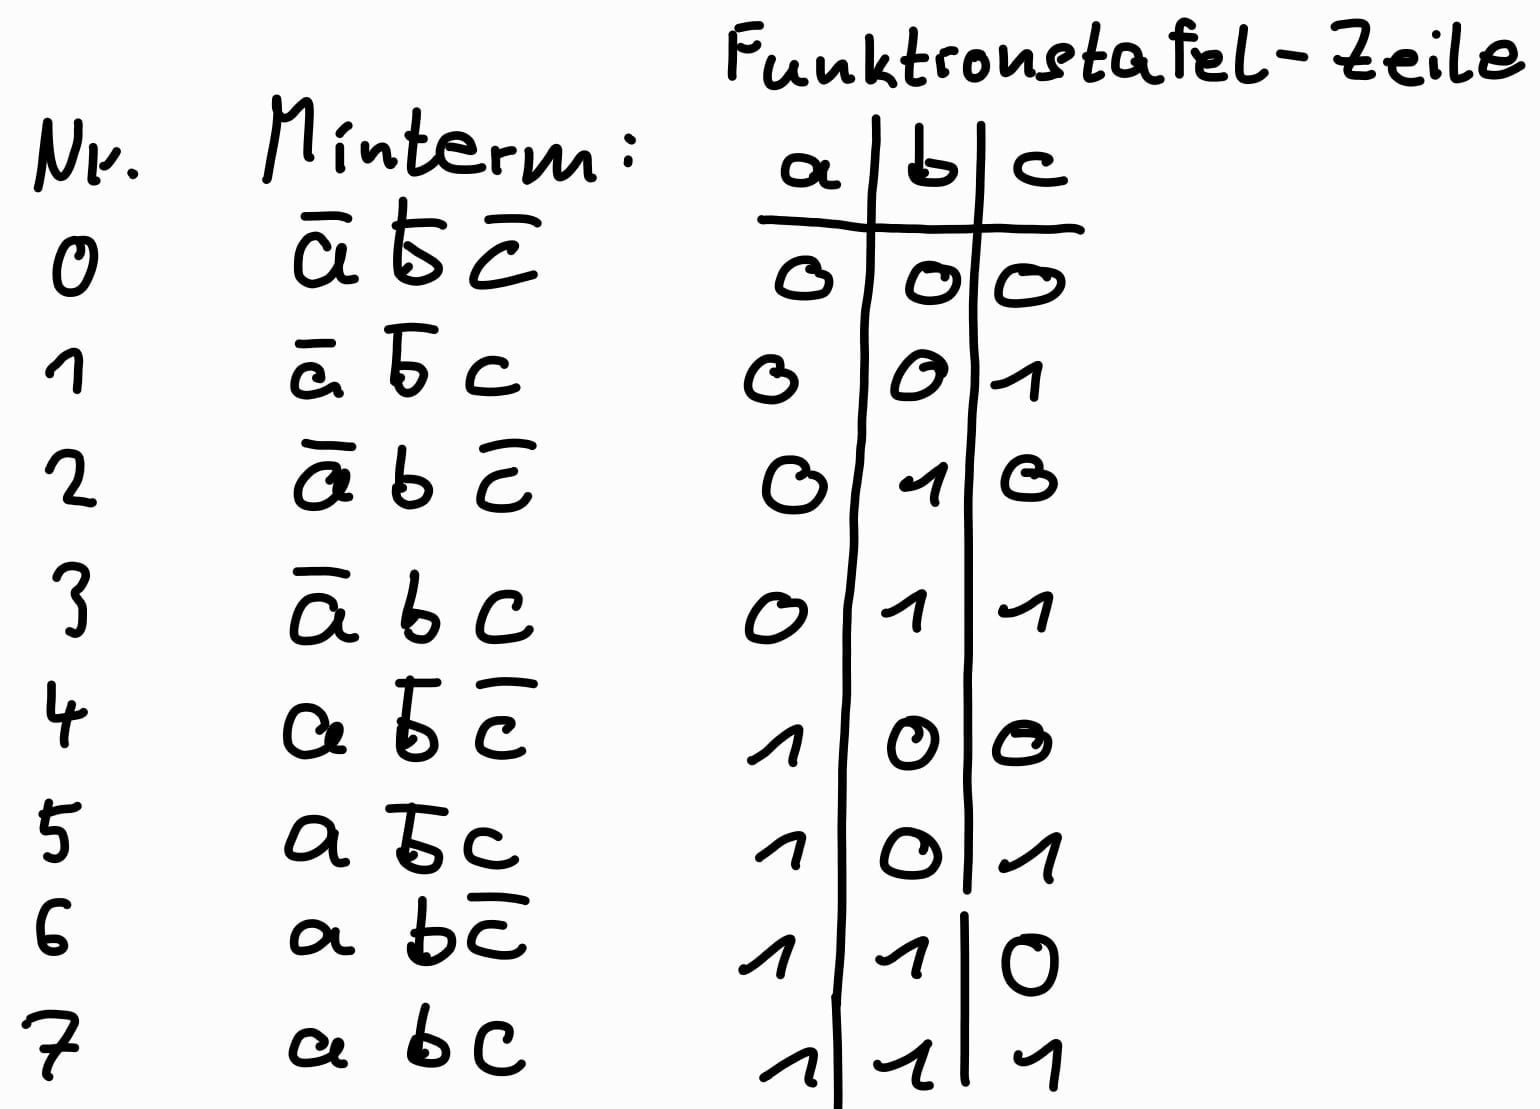 Funktronstafel-Zeile
Nr. Minterm: a b c
0 a̅ b̅ c̅ 0 0 0
1 a̅ b̅ c 0 0 1
2 a̅ b c̅ 0 1 0
3 a̅ b c 0 1 1
4 a b̅ c̅ 1 0 0
5 a b̅ c 1 0 1
6 a b c̅ 1 1 0
7 a b c 1 1 1